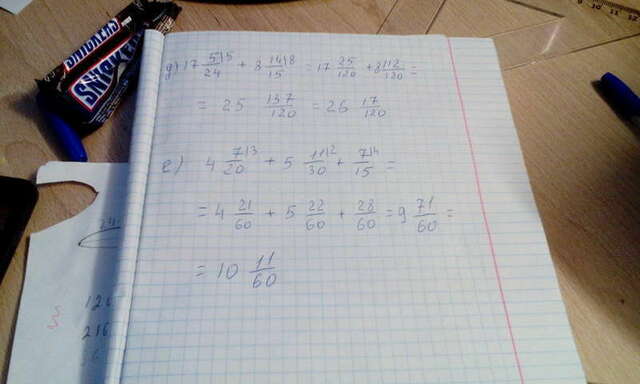 SNICKERS
д) 17 5\5/24 + 8 14\8/15 = 17 25/120 + 8 112/120 =
= 25 137/120 = 26 17/120
е) 4 7\3/20 + 5 11\2/30 + 7\4/15 =
= 4 21/60 + 5 22/60 + 28/60 = 9 71/60 =
= 10 11/60
216